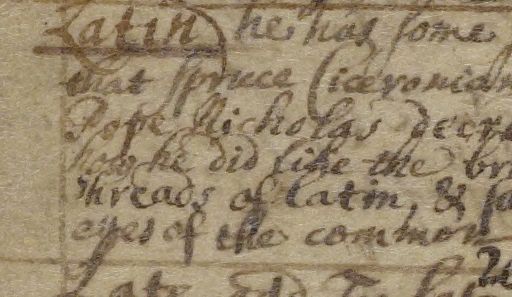 Latin he has some
that spruce Ciceronian
Pope Nicholas decre
how he did like the br
threads of latin, & fa
eyes of the common